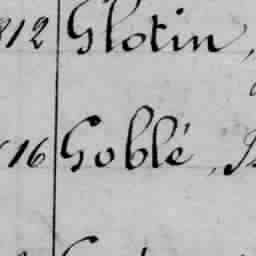 812 Glotin,
16 Goblé,